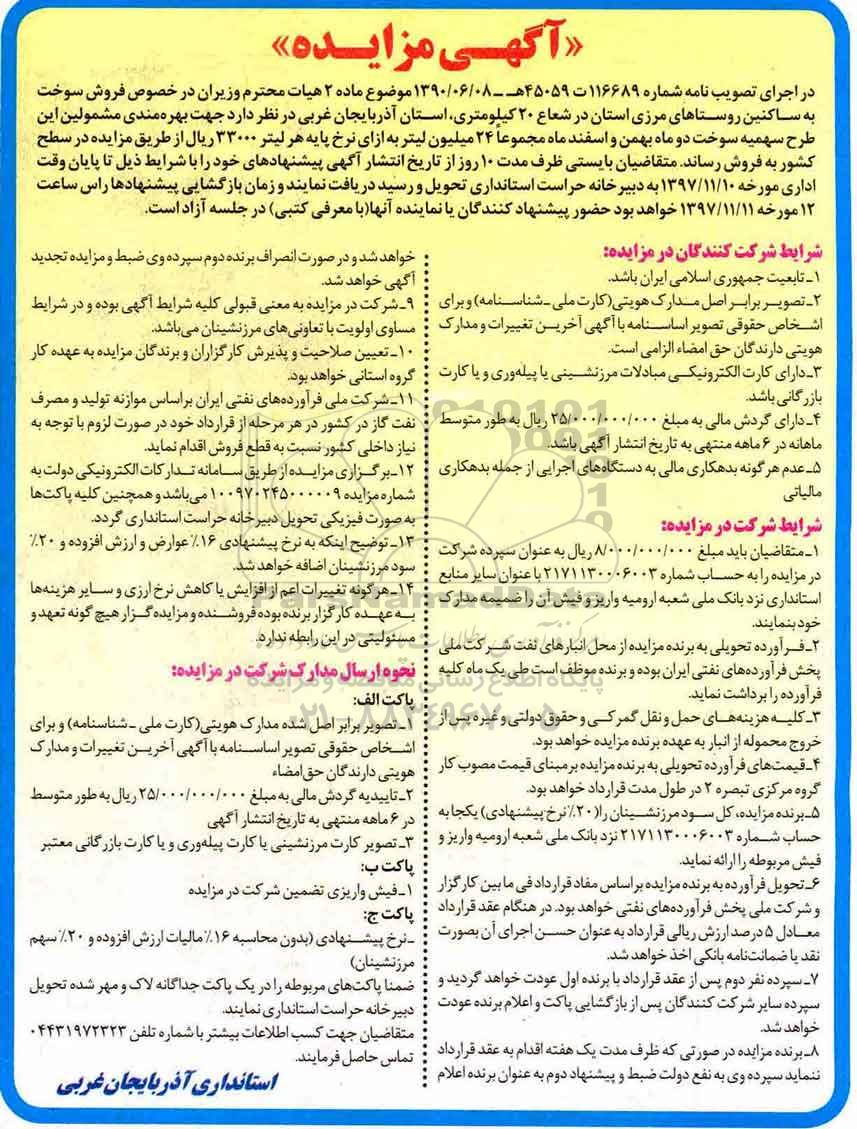 «آگهـی مزایـده»
در اجرای تصویب نامه شماره ۱۱۶۶۸۹ ت ۴۵۰۵۹هـ ــ ۱۳۹۰/۰۶/۰۸ موضوع ماده ۲ هیات محترم وزیران در خصوص فروش سوخت
به ساکنین روستاهای مرزی استان در شعاع ۲۰ کیلومتری، استان آذربایجان غربی در نظر دارد جهت بهره‌مندی مشمولین این
طرح سهمیه سوخت دو ماه بهمن و اسفند ماه مجموعاً ۲۴ میلیون لیتر به ازای نرخ پایه هر لیتر ۳۳۰۰۰ ریال از طریق مزایده در سطح
کشور به فروش رساند. متقاضیان بایستی ظرف مدت ۱۰ روز از تاریخ انتشار آگهی پیشنهادهای خود را با شرایط ذیل تا پایان وقت
اداری مورخه ۱۳۹۷/۱۱/۱۰ به دبیرخانه حراست استانداری تحویل و رسید دریافت نمایند و زمان بازگشایی پیشنهادها راس ساعت
۱۲ مورخه ۱۳۹۷/۱۱/۱۱ خواهد بود حضور پیشنهاد کنندگان یا نماینده آنها(با معرفی کتبی) در جلسه آزاد است.
شرایط شرکت کنندگان در مزایده:
۱ـ تابعیت جمهوری اسلامی ایران باشد.
۲ـ تصویـر برابـر اصل مـدارک هویتی(کارت ملی ـ شناسـنامه) و برای
اشـخاص حقوقی تصویر اساسـنامه با آگهی آخریـن تغییرات و مدارک
هویتی دارندگان حق امضاء الزامی است.
۳ـ دارای کارت الکترونیکـی مبادلات مرزنشـینی یا پیله‌وری و یا کارت
بازرگانی باشد.
۴ـ دارای گردش مالی به مبلغ ۲۵/۰۰۰/۰۰۰/۰۰۰ ریال به طور متوسط
ماهانه در ۶ ماهه منتهی به تاریخ انتشار آگهی باشد.
۵ـ عدم هرگونه بدهکاری مالی به دستگاه‌های اجرایی از جمله بدهکاری
مالیاتی
شرایط شرکت در مزایده:
۱ـ متقاضیان باید مبلغ ۸/۰۰۰/۰۰۰/۰۰۰ ریال به عنوان سپرده شرکت
در مزایده را به حساب شماره ۲۱۷۱۱۳۰۰۰۶۰۰۳ با عنوان سایر منابع
استانداری نزد بانک ملی شعبه ارومیه واریز و فیش آن را ضمیمه مدارک
خود بنمایند.
۲ـ فـرآورده تحویلی به برنده مزایده از محل انبارهای نفت شـرکت ملی
پخش فرآورده‌های نفتی ایران بوده و برنده موظف است طی یک ماه کلیه
فرآورده را برداشت نماید.
۳ـ کلیـه هزینه‌هـای حمل و نقل گمرکـی و حقوق دولتی و غیره پس از
خروج محموله از انبار به عهده برنده مزایده خواهد بود.
۴ـ قیمت‌های فرآورده تحویلی به برنده مزایده بر مبنای قیمت مصوب کار
گروه مرکزی تبصره ۲ در طول مدت قرارداد خواهد بود.
۵ـ برنده مزایده، کل سـود مرزنشـینان را(۲۰٪ نرخ پیشنهادی) یکجا به
حساب شـماره ۲۱۷۱۱۳۰۰۰۶۰۰۳ نزد بانک ملی شعبه ارومیه واریز و
فیش مربوطه را ارائه نماید.
۶ـ تحویل فرآورده به برنده مزایده بر اساس مفاد قرارداد فی مابین کارگزار
و شرکت ملی پخش فرآورده‌های نفتی خواهد بود. در هنگام عقد قرارداد
معـادل ۵ درصد ارزش ریالی قرارداد به عنوان حسـن اجرای آن بصورت
نقد یا ضمانت‌نامه بانکی اخذ خواهد شد.
۷ـ سپرده نفر دوم پس از عقد قرارداد با برنده اول عودت خواهد گردید و
سپرده سایر شرکت کنندگان پس از بازگشایی پاکت و اعلام برنده عودت
خواهد شد.
۸ـ برنده مزایده در صورتی که ظرف مدت یک هفته اقدام به عقد قرارداد
ننماید سپرده وی به نفع دولت ضبط و پیشنهاد دوم به عنوان برنده اعلام
خواهد شد و در صورت انصراف برنده دوم سپرده وی ضبط و مزایده تجدید
آگهی خواهد شد.
۹ـ شرکت در مزایده به معنی قبولی کلیه شرایط آگهی بوده و در شرایط
مساوی اولویت با تعاونی‌های مرزنشینان می‌باشد.
۱۰ـ تعیین صلاحیت و پذیرش کارگزاران و برندگان مزایده به عهده کار
گروه استانی خواهد بود.
۱۱ـ شرکت ملی فرآورده‌های نفتی ایران بر اساس موازنه تولید و مصرف
نفت گاز در کشور در هر مرحله از قرارداد خود در صورت لزوم با توجه به
نیاز داخلی کشور نسبت به قطع فروش اقدام نماید.
۱۲ـ برگـزاری مزایـده از طریق سـامانه تـدارکات الکترونیکی دولت به
شماره مزایده ۱۰۰۹۷۰۲۴۵۰۰۰۰۰۹ می‌باشد و همچنین کلیه پاکت‌ها
به صورت فیزیکی تحویل دبیرخانه حراست استانداری گردد.
۱۳ـ توضیح اینکه به نرخ پیشنهادی ۱۶٪ عوارض و ارزش افزوده و ۲۰٪
سود مرزنشینان اضافه خواهد شد.
۱۴ـ هرگونه تغییرات اعم از افزایش یا کاهش نرخ ارزی و سـایر هزینه‌ها
بـه عهـده کارگزار برنده بوده فروشنده و مزایده‌گـزار هیچ گونه تعهد و
مسئولیتی در این رابطه ندارد.
نحوه ارسال مدارک شرکت در مزایده:
پاکت الف:
۱ـ تصویر برابر اصل شده مدارک هویتی(کارت ملی ـ شناسنامه) و برای
اشـخاص حقوقی تصویر اساسـنامه با آگهی آخریـن تغییرات و مدارک
هویتی دارندگان حق‌امضاء
۲ـ تاییدیه گردش مالی به مبلغ ۲۵/۰۰۰/۰۰۰/۰۰۰ ریال به طور متوسط
در ۶ ماهه منتهی به تاریخ انتشار آگهی
۳ـ تصویر کارت مرزنشینی یا کارت پیله‌وری و یا کارت بازرگانی معتبر
پاکت ب:
۱ـ فیش واریزی تضمین شرکت در مزایده
پاکت ج:
ـ نرخ پیشـنهادی (بدون محاسبه ۱۶٪ مالیات ارزش افزوده و ۲۰٪ سهم
مرزنشینان)
ضمنا پاکت‌های مربوطه را در یک پاکت جداگانه لاک و مهر شده تحویل
دبیرخانه حراست استانداری نمایند.
متقاضیان جهت کسب اطلاعات بیشتر با شماره تلفن ۰۴۴۳۱۹۷۲۳۲۳
تماس حاصل فرمایند.
استانداری آذربایجان غربی
پایگاه اطلاع رسانی مناقصه و مزایده
۰۲۱-۸۸۳۴۹۶۷۰-۵